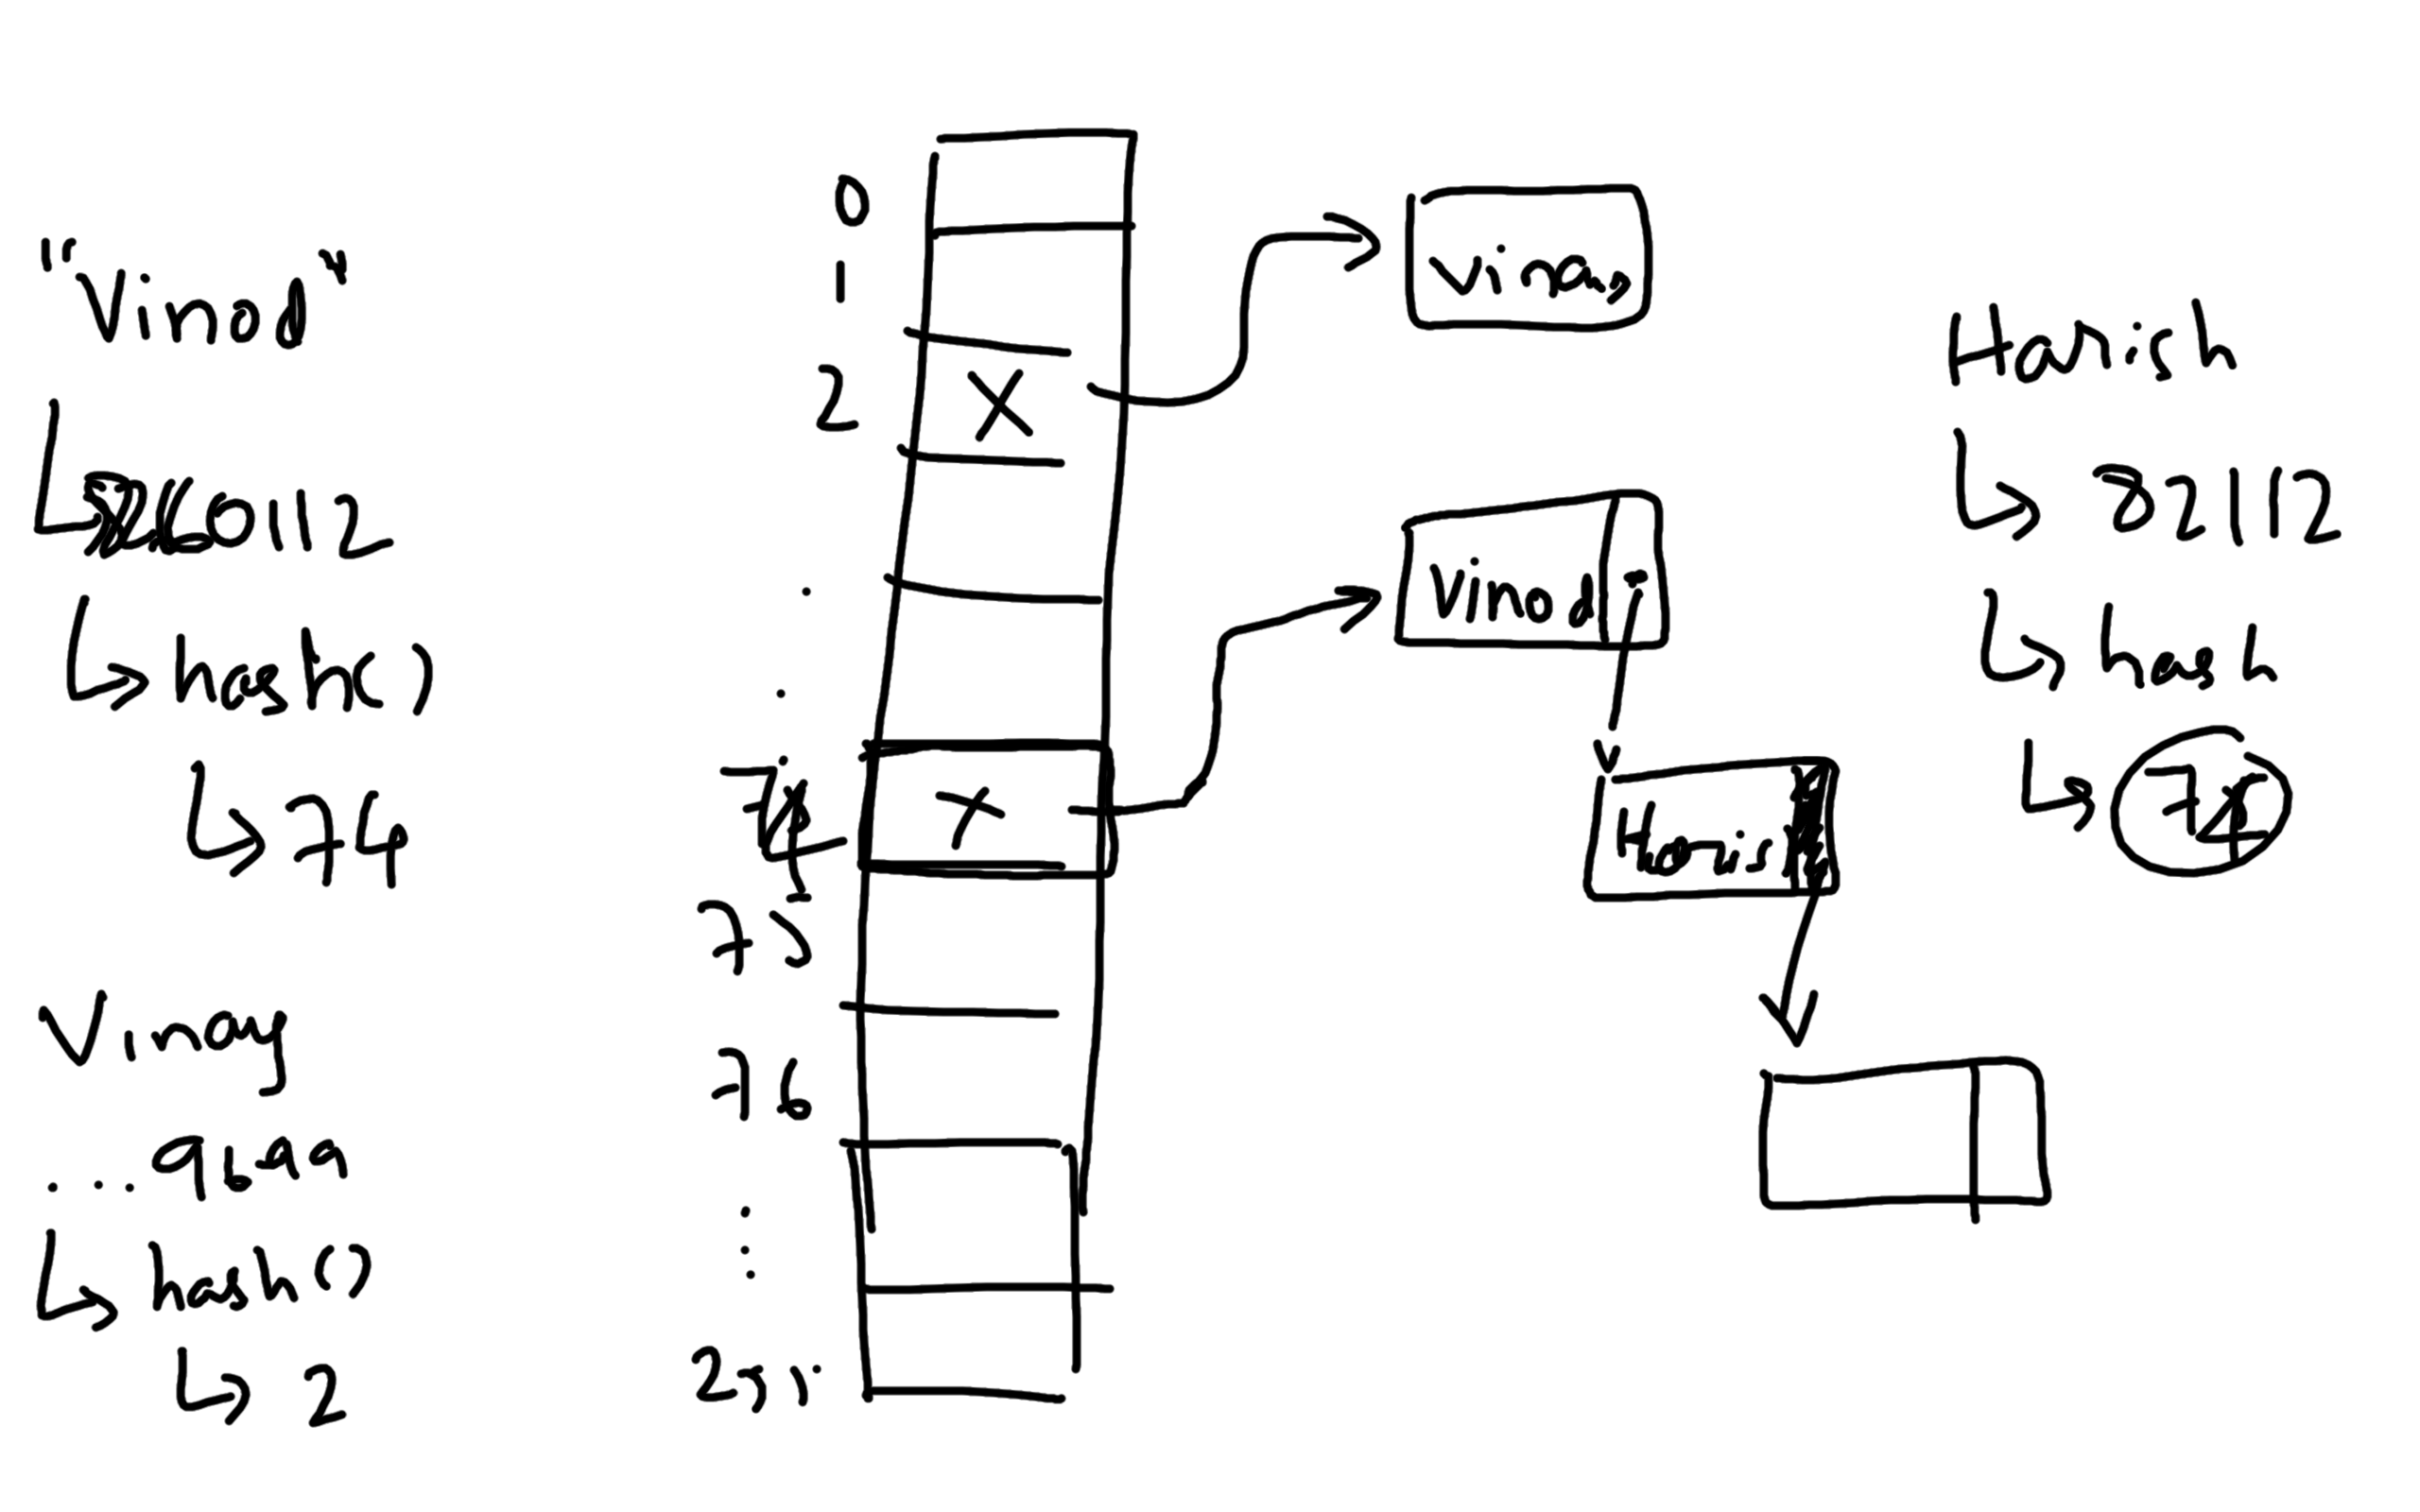 "Vinod"
60112
hash()
74
Vinay
...9699
hash()
2
0
1
2
X
.
.
74
X
75
76
255
vinay
Vinod
Harish
Harish
82112
hash
74